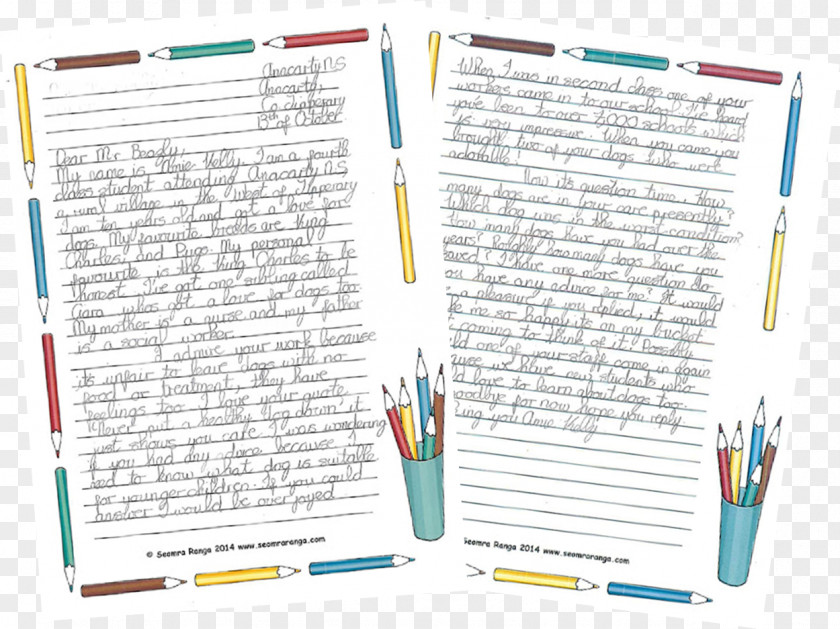 Anacarty N.S
Anacarty,
Co. Tipperary
13th of October
Dear Mr Beagly,
My name is Amie Kelly. I am a fourth
class student attending Anacarty N.S,
a rural village in the west of Tipperary
I am ten years old and got a love for
dogs. My favourite breeds are King
Charles' and Pugs. My personal
favourite is the King Charles to be
honest. I've got one sibling called
Ciara whos got a love for dogs too.
My mother is a nurse and my father
is a social worker.
I admire your work because
its unfair to leave dogs with no
food or treatment, they have
feelings too. I love your quote,
"Never put a healthy dog down" it
just shows you care. I was wondering
if you had any advice because I
need to know what dog is suitable
for younger children. If you could
answer I would be overjoyed.
© Seomra Ranga 2014 www.seomraranga.com
When I was in second class one of your
workers came in to our school. I've heard
you've been to over 7,000 schools which
is very impressive. When you came you
brought two of your dogs who were
adorable!
Now its question time. How
many dogs are in your care presently?
Which dog was in the worst condition?
How many dogs have you had over the
years? Roughly how many dogs have you
saved? I have one more question do
you have any advice for me? It would
be a pleasure if you replied, it would
me so happy its on my bucket
coming to think of it. Possibly
could one of your staff come in again
we have new students who
love to learn about dogs too.
Goodbye for now hope you reply
you Amie Kelly
© Seomra Ranga 2014 www.seomraranga.com